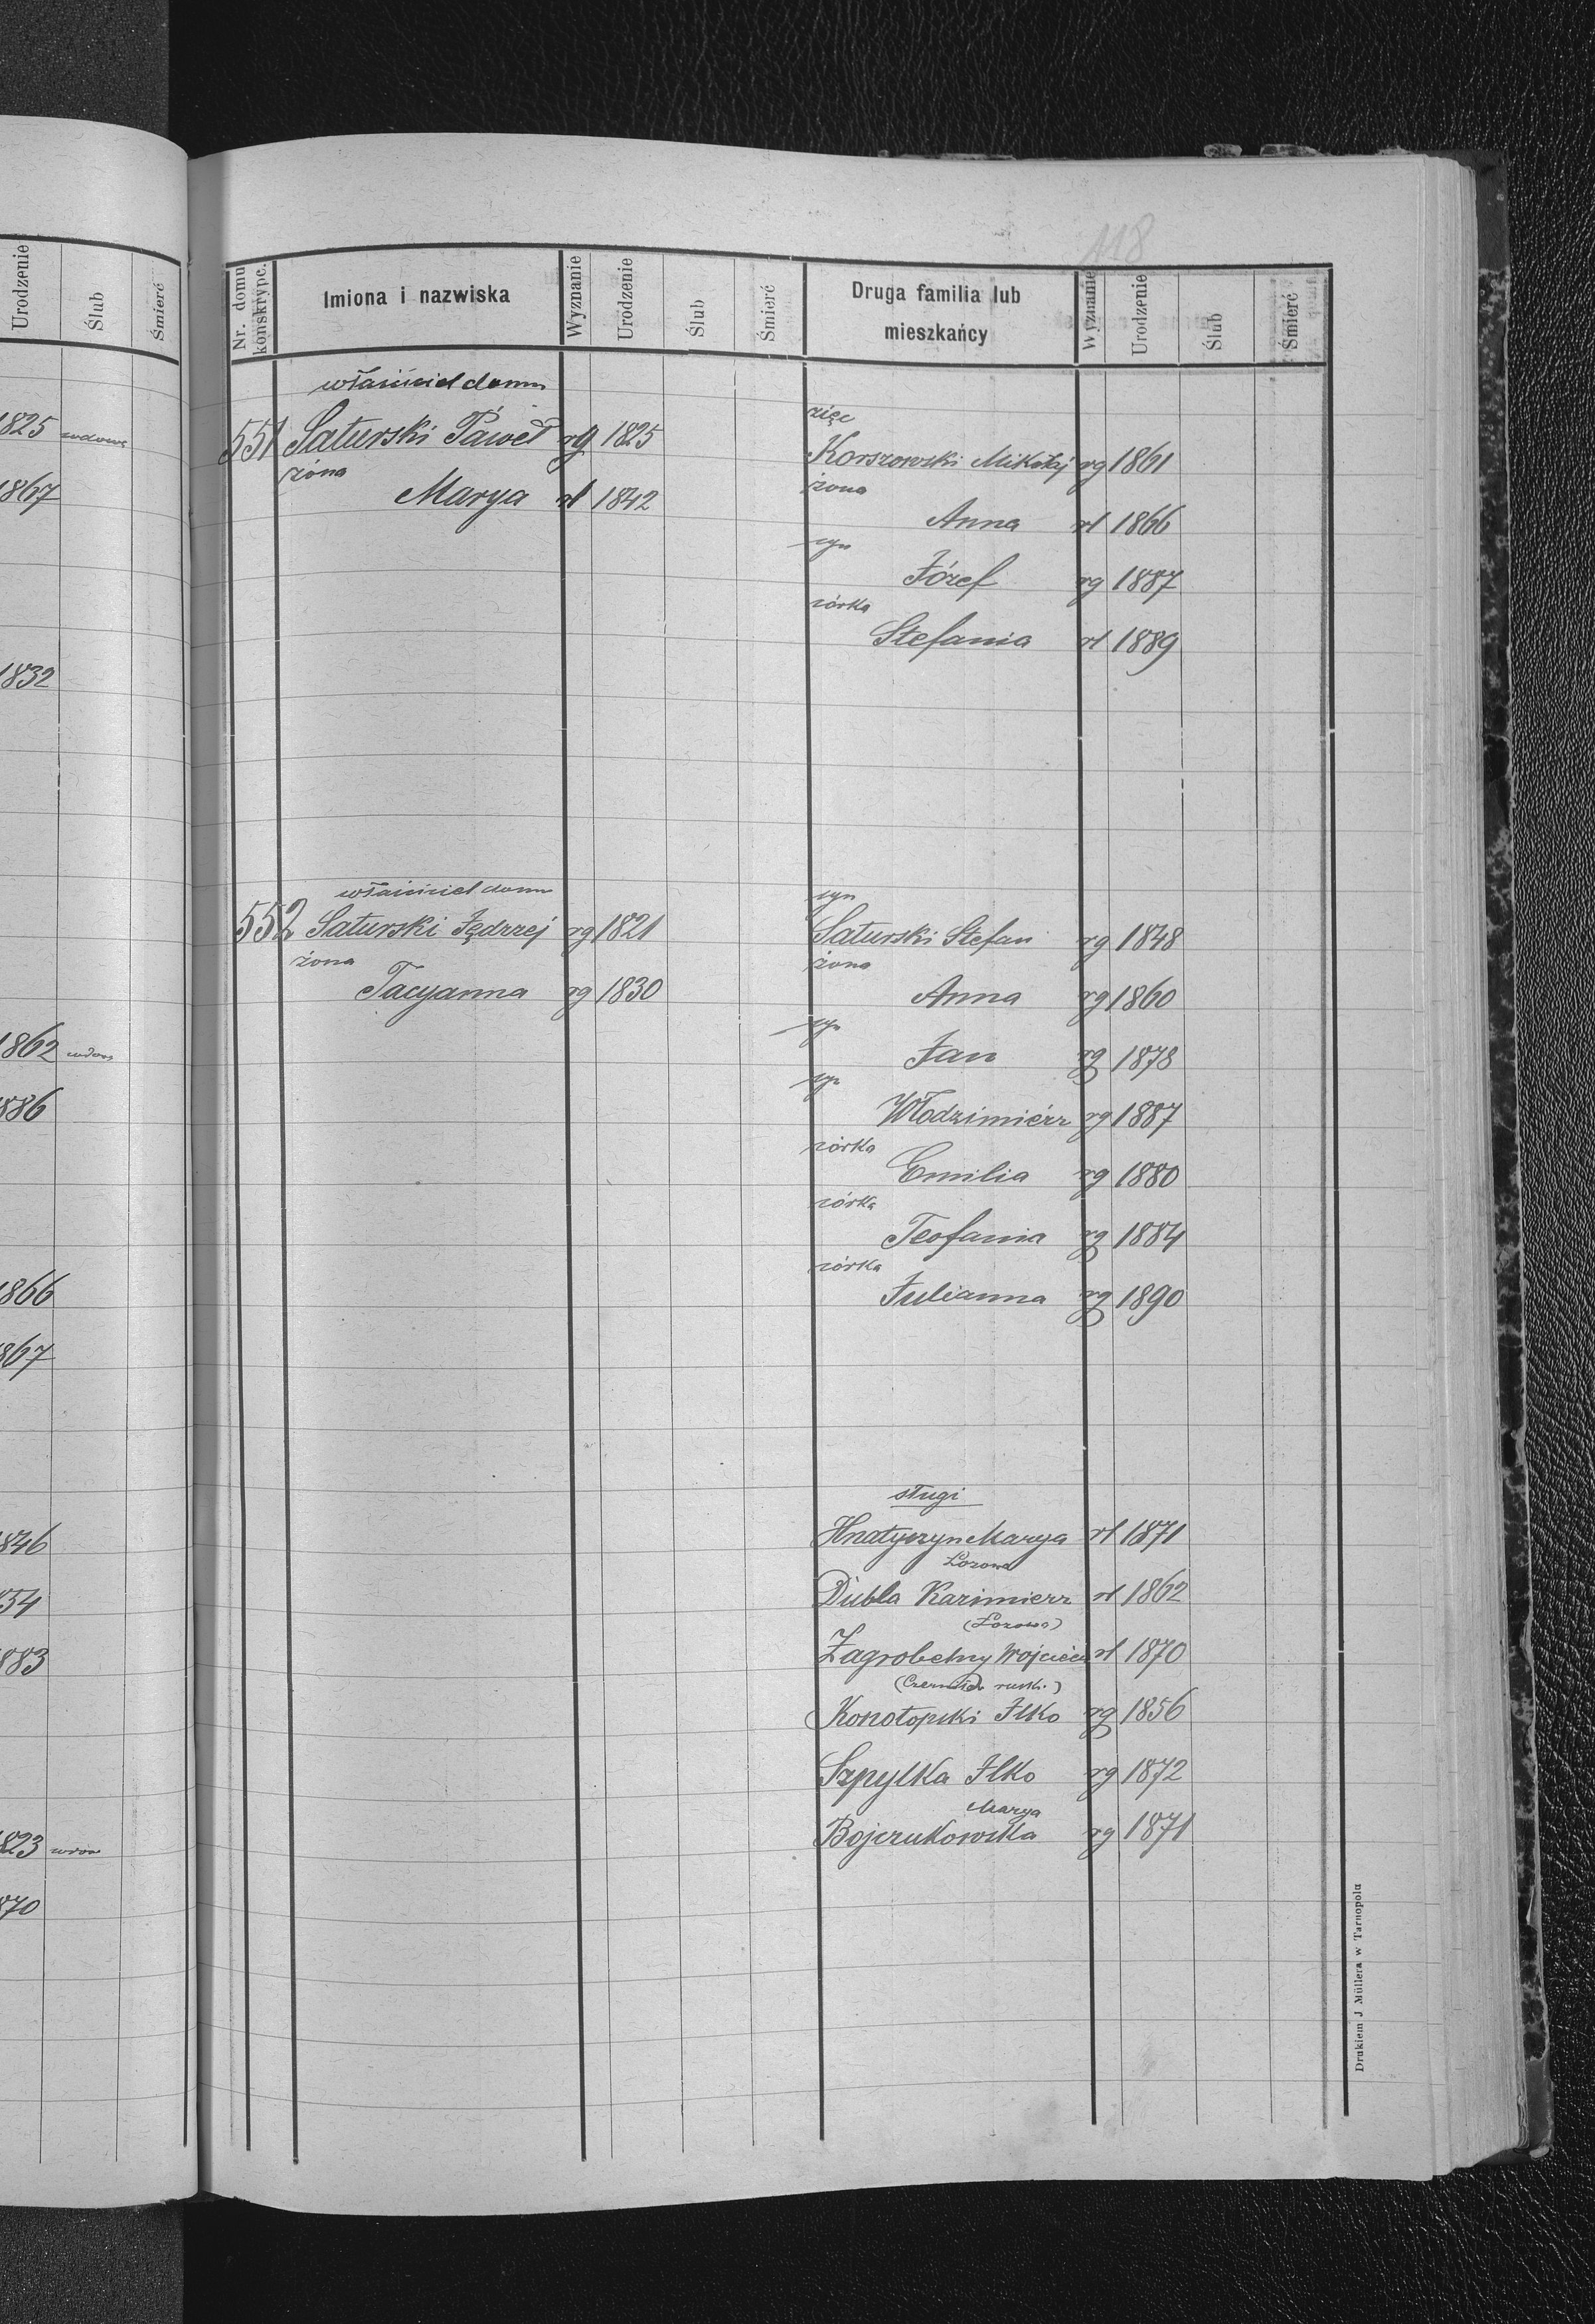 118
Urodzenie Ślub Śmierć
1825 wdowa
1867
1832
1862 wdow
886
1866
867
846
883
823 wdow
870
Nr. domu konskrypc. Imiona i nazwiska Wyznanie Urodzenie Ślub Śmierć
właściciel domu
551 Saturski Paweł rg 1825
żona
Marya rł 1842
właściciel domu
552 Saturski Jędrzej rg 1821
żona
Tacyanna rg 1830
Druga familia lub mieszkańcy Wyznanie Urodzenie Ślub Śmierć
zięc
Korszowski Mikołaj rg 1861
żona
Anna rł 1866
syn
Józef rg 1887
córka
Stefania rł 1889
syn
Saturski Stefan rg 1848
żona
Anna rg 1860
syn
Jan rg 1878
syn
Włodzimierz rg 1887
córka
Emilia rg 1880
córka
Teofania rg 1884
córka
Julianna rg 1890
sługi
Hnatyszyn Marya rł 1871
Łozowa
Dubla Kazimierz rł 1862
(Łozowa)
Zagrobelny Wojciech rł 1870
rusk.)
Konotopski Ilko rg 1856
Szpylka Ilko rg 1872
Marya
Bojczukowska rg 1871
Drukiem J Müllera w Tarnopolu